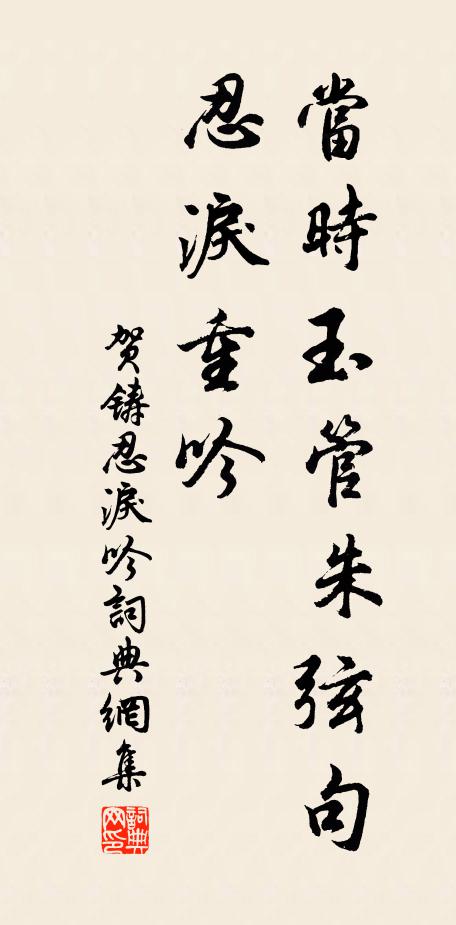 當時玉管朱弦句
忍淚重吟
贺鑄忍淚吟詞典網集
詞典网印